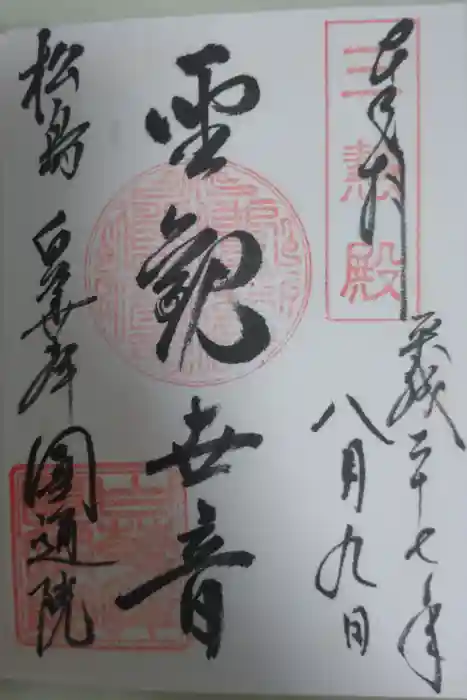 奉拝
三慧殿
平成二十七年
八月九日
聖観世音
松島 白華峰 圓通院